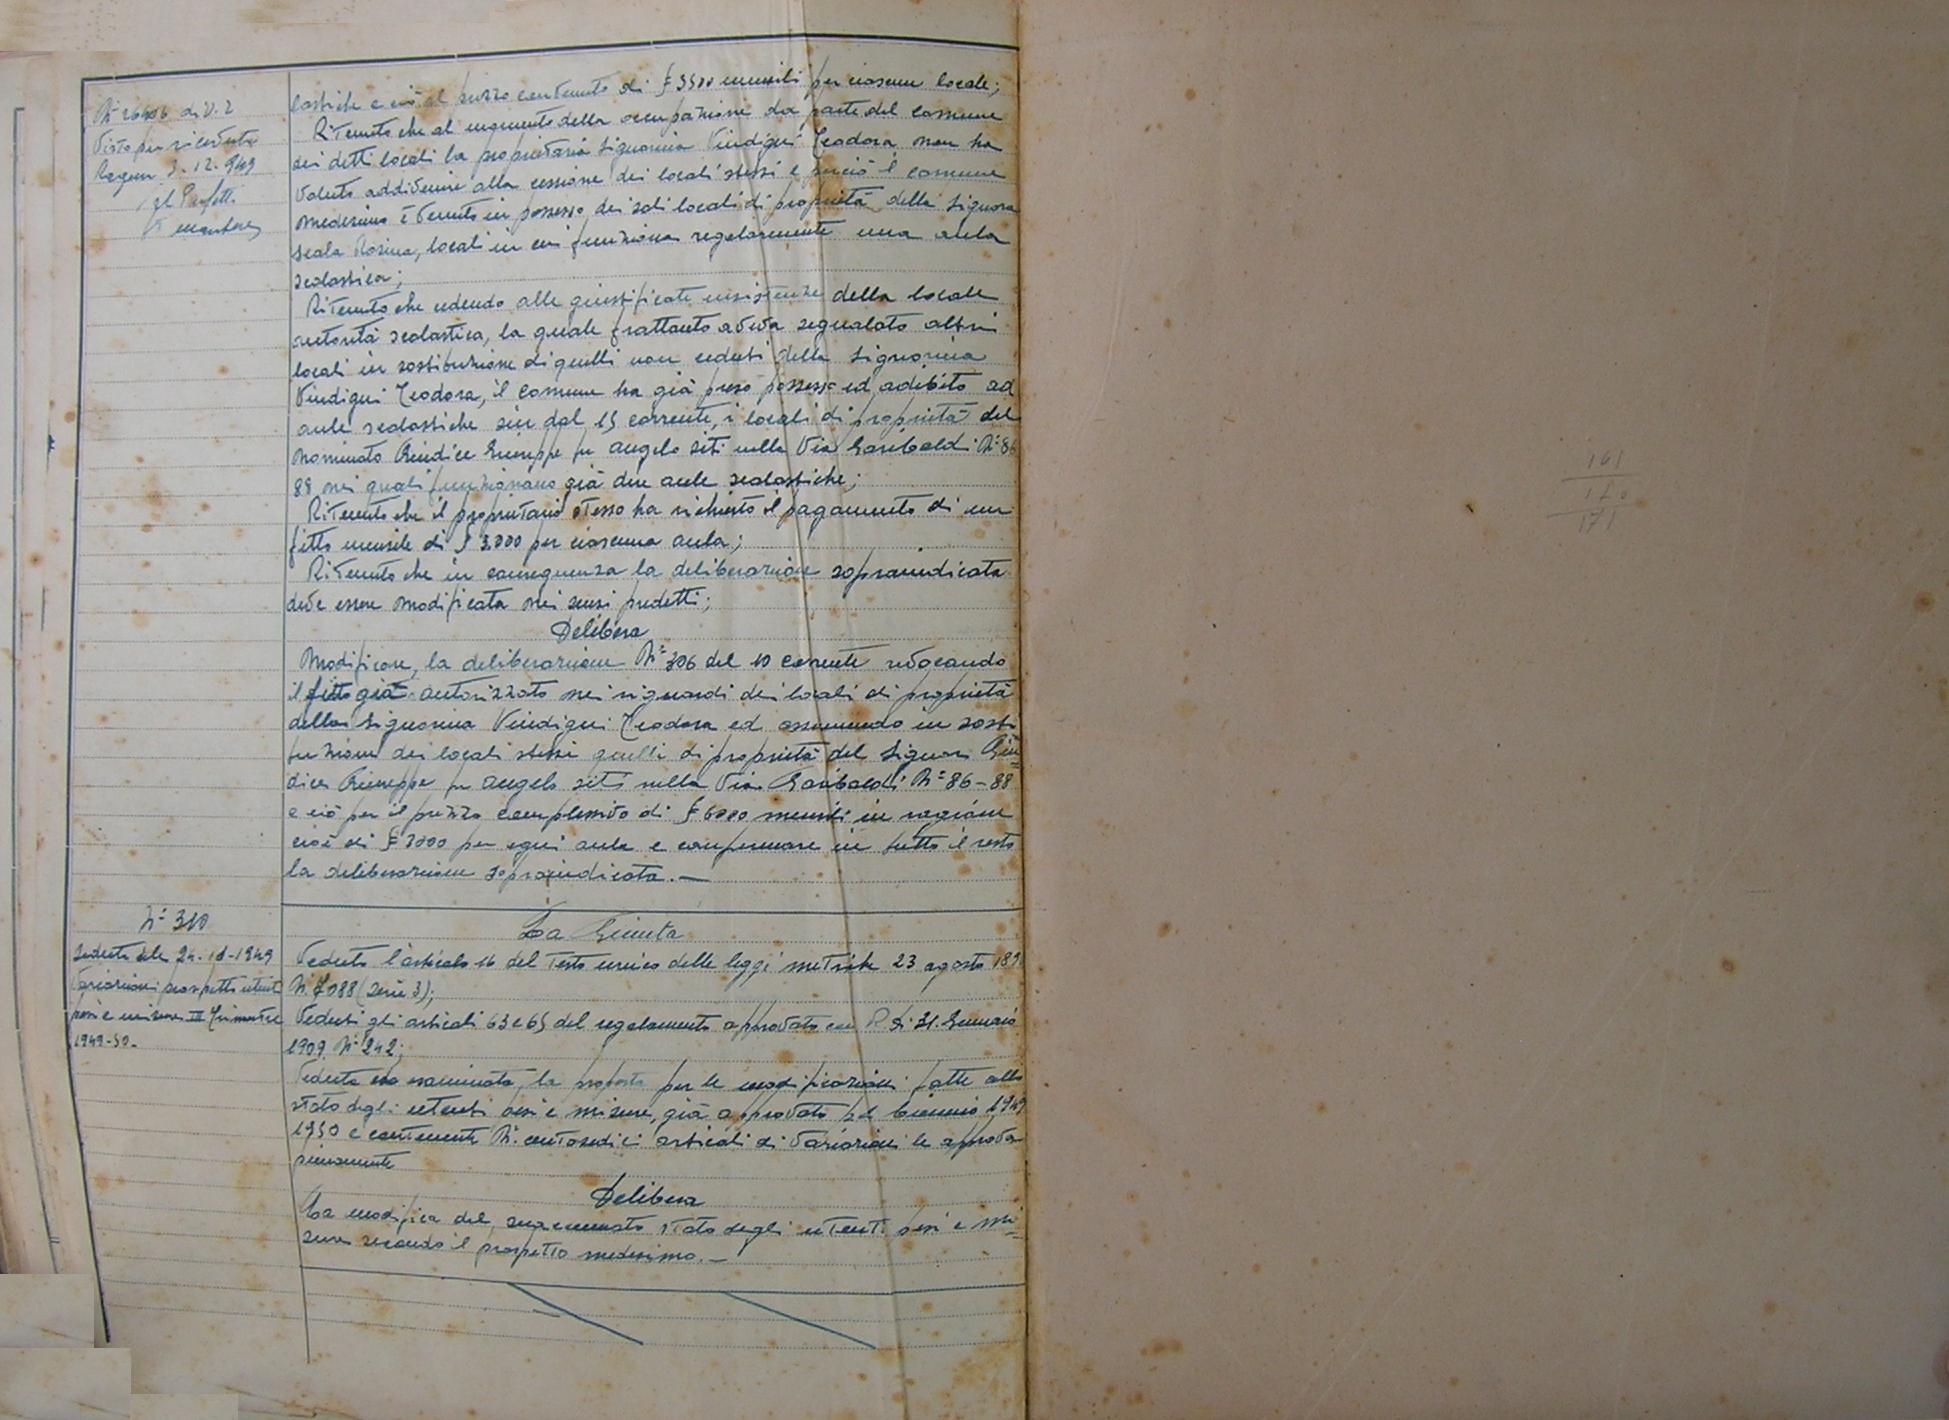 N° 26406 div. 2
Visto per ricevuta
Ragusa 3-12-949
Il Prefetto
lastiche e ciò al prezzo convenuto di £ 3500 mensili per ciascun locale;
Ritenuto che al momento della occupazione da parte del comune
dei detti locali la proprietaria Signorina Vindigni Teodora non ha
voluto addivenire alla cessione dei locali stessi e perciò il comune
medesimo è venuto in possesso dei soli locali di proprietà della Signora
Scala Rosina, locali in cui funziona regolarmente una aula
scolastica;
Ritenuto che cedendo alle giustificate insistenze della locale
autorità scolastica, la quale frattanto aveva segnalato altri
locali in sostituzione di quelli non ceduti della Signorina
Vindigni Teodora, il comune ha già preso possesso ed adibito ad
aule scolastiche sin dal 15 corrente, i locali di proprietà del
nominato Giudice Giuseppe fu Angelo siti nella Via Garibaldi N° 86
88 nei quali funzionano già due aule scolastiche;
Ritenuto che il proprietario stesso ha richiesto il pagamento di un
fitto mensile di £ 3.000 per ciascuna aula;
Ritenuto che in conseguenza la deliberazione sopraindicata
deve essere modificata nei sensi predetti;
Delibera
Modificare, la deliberazione N° 306 del 10 corrente revocando
il fitto già autorizzato nei riguardi dei locali di proprietà
della Signorina Vindigni Teodora ed assumendo in sosti
tuzione dei locali stessi quelli di proprietà del Signor Giu=
dice Giuseppe fu Angelo siti nella Via Garibaldi N° 86-88
e ciò per il prezzo complessivo di £ 6000 mensili in ragione
cioè di £ 3000 per ogni aula e confermare in tutto il resto
la deliberazione sopraindicata.—
N° 310
Seduta del 24-10-1949
Variazioni prospetto utenti
pesi e misure III Trimestre
1949-50-
La Giunta
Veduto l'articolo 16 del Testo unico delle leggi metriche 23 agosto 189
N. 7088 (serie 3);
Veduti gli articoli 63 e 65 del regolamento approvato con R. D. 31 Gennaio
1909 N° 242;
Veduta ed esaminata la proposta per le modificazioni fatte allo
stato degli utenti pesi e misure, già approvato pel biennio 1949
1950 e contenente N. centosedici articoli di variazioni le approva
pienamente
Delibera
La modifica del summenzionato stato degli utenti pesi e mi=
sure secondo il prospetto medesimo.—
161
170
171